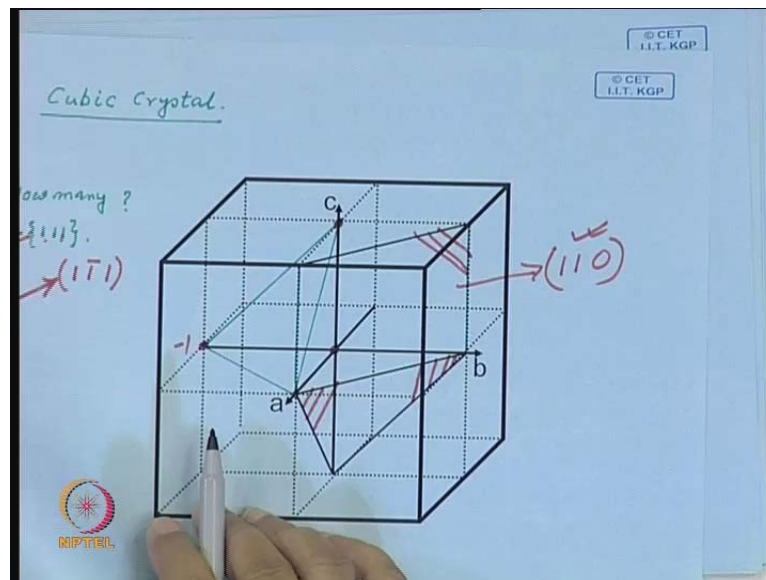 © CET
I.I.T. KGP
© CET
I.I.T. KGP
Cubic Crystal.
How many ?
{111}.
(11̅1)
c
(110)
-1
b
a
NPTEL